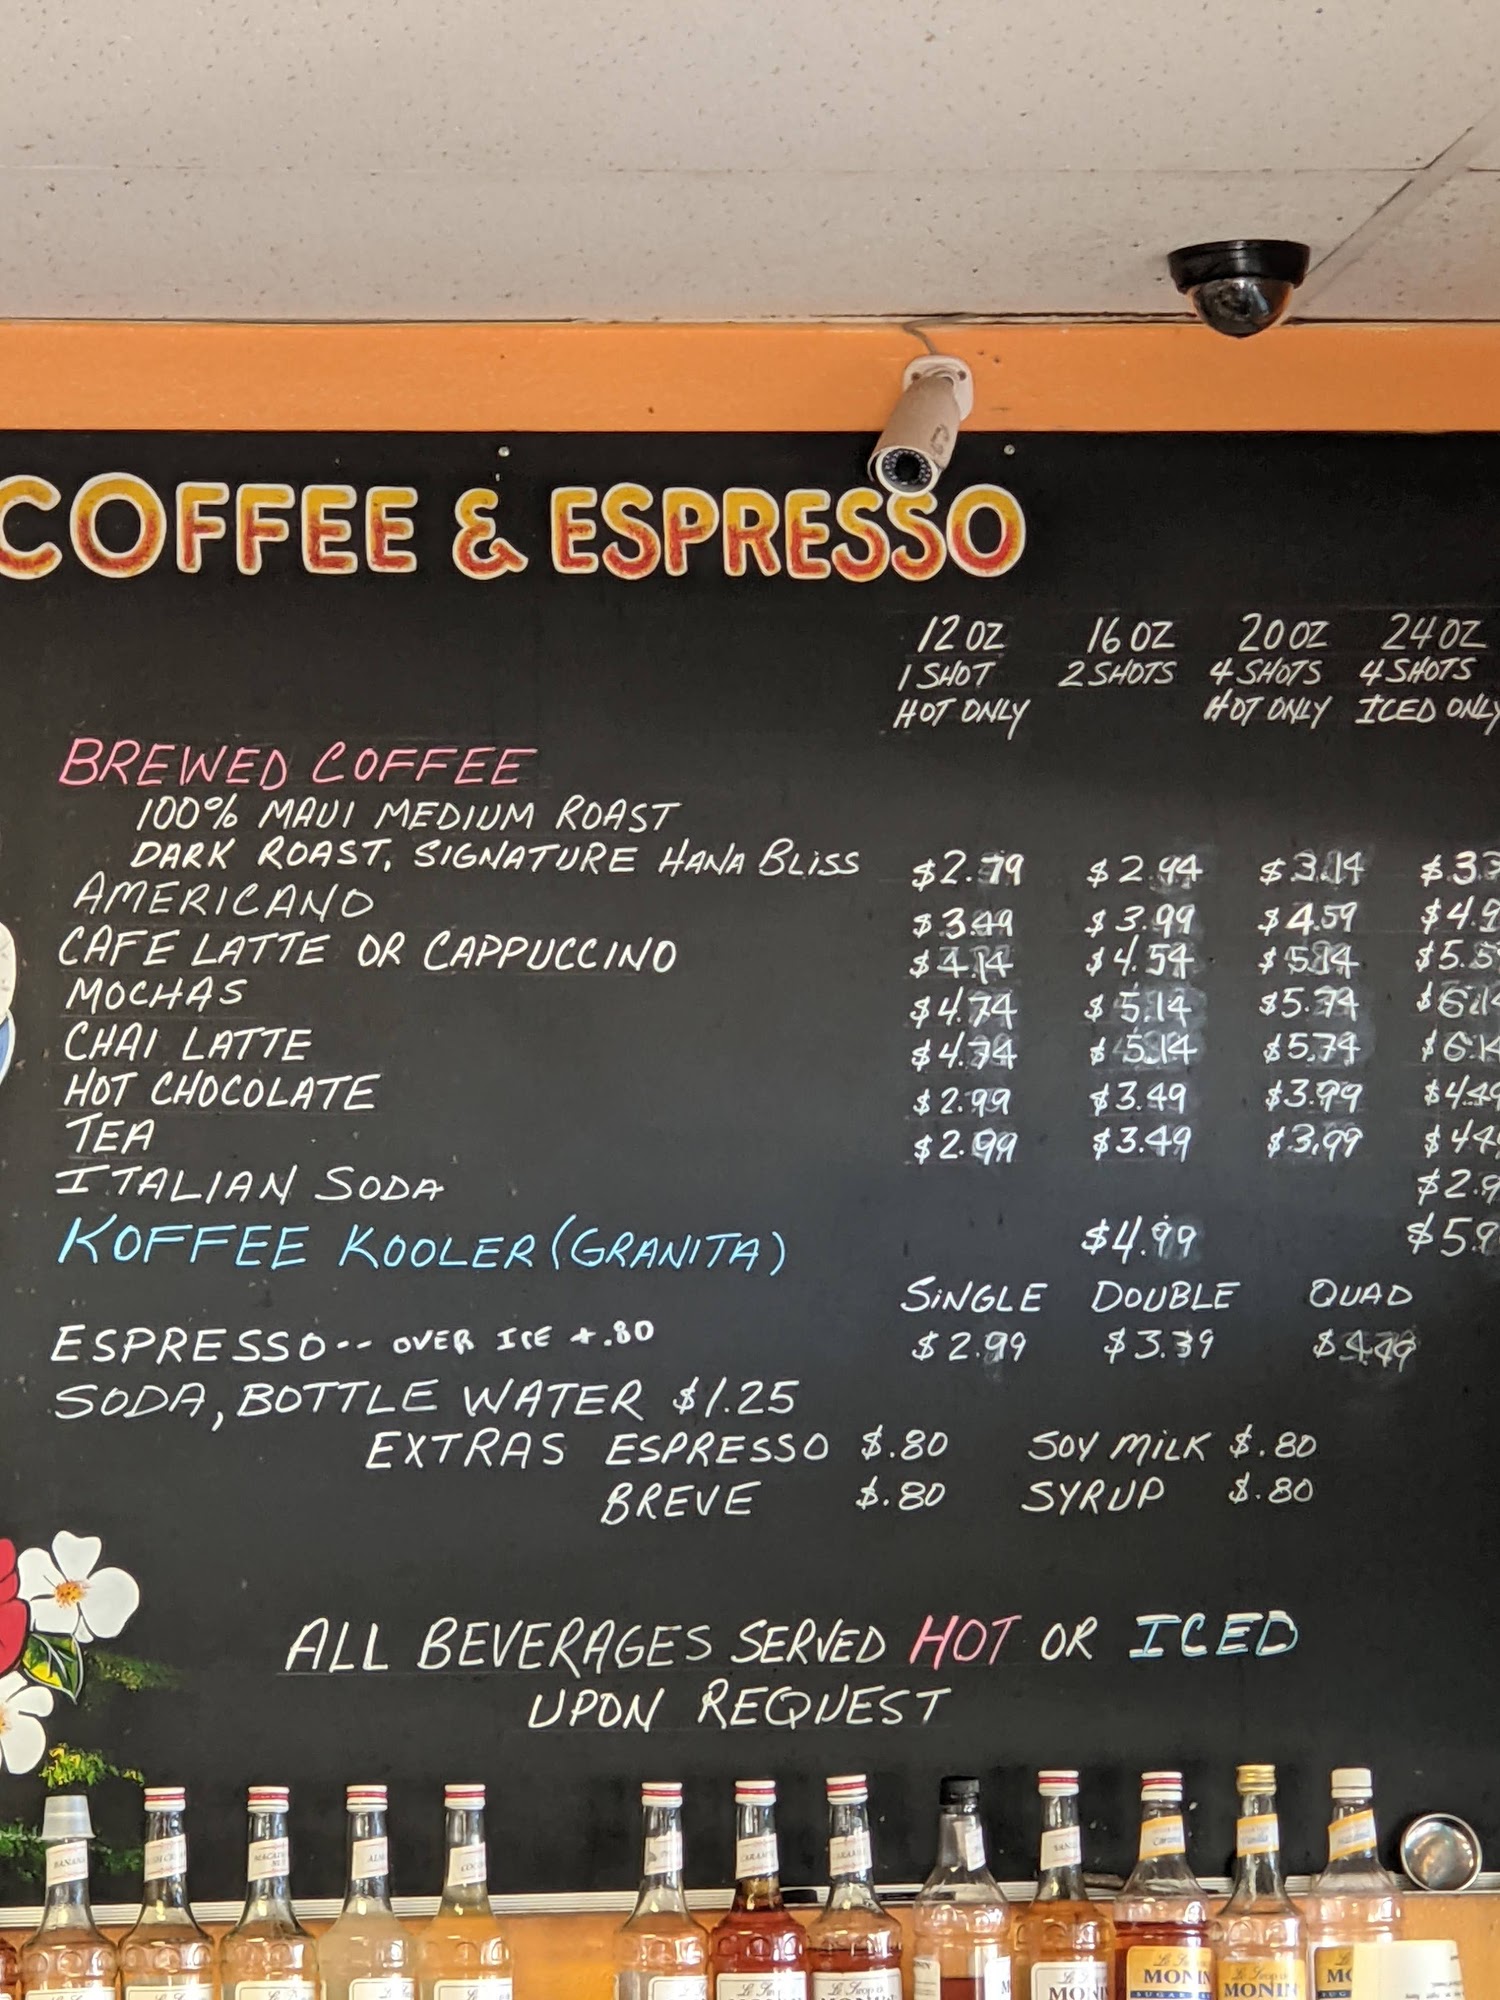 COFFEE & ESPRESSO
12 OZ 16 OZ 20 OZ 24 OZ
1 SHOT 2 SHOTS 4 SHOTS 4 SHOTS
HOT ONLY HOT ONLY ICED ONLY
BREWED COFFEE
100% MAUI MEDIUM ROAST
DARK ROAST, SIGNATURE HANA BLISS $2.79 $2.94 $3.14
AMERICANO $3.49 $3.99 $4.59
CAFE LATTE OR CAPPUCCINO $4.14 $4.54 $5.14
MOCHAS $4.74 $5.14 $5.74 $6.14
CHAI LATTE $4.74 $5.14 $5.74 $6.14
HOT CHOCOLATE $2.99 $3.49 $3.99 $4.49
TEA $2.99 $3.49 $3.99
ITALIAN SODA
KOFFEE KOOLER (GRANITA) $4.99
SINGLE DOUBLE QUAD
ESPRESSO-- OVER ICE +.80 $2.99 $3.39 $4.49
SODA, BOTTLE WATER $1.25
EXTRAS ESPRESSO $.80 SOY MILK $.80
BREVE $.80 SYRUP $.80
ALL BEVERAGES SERVED HOT OR ICED
UPON REQUEST
MONIN
MONIN